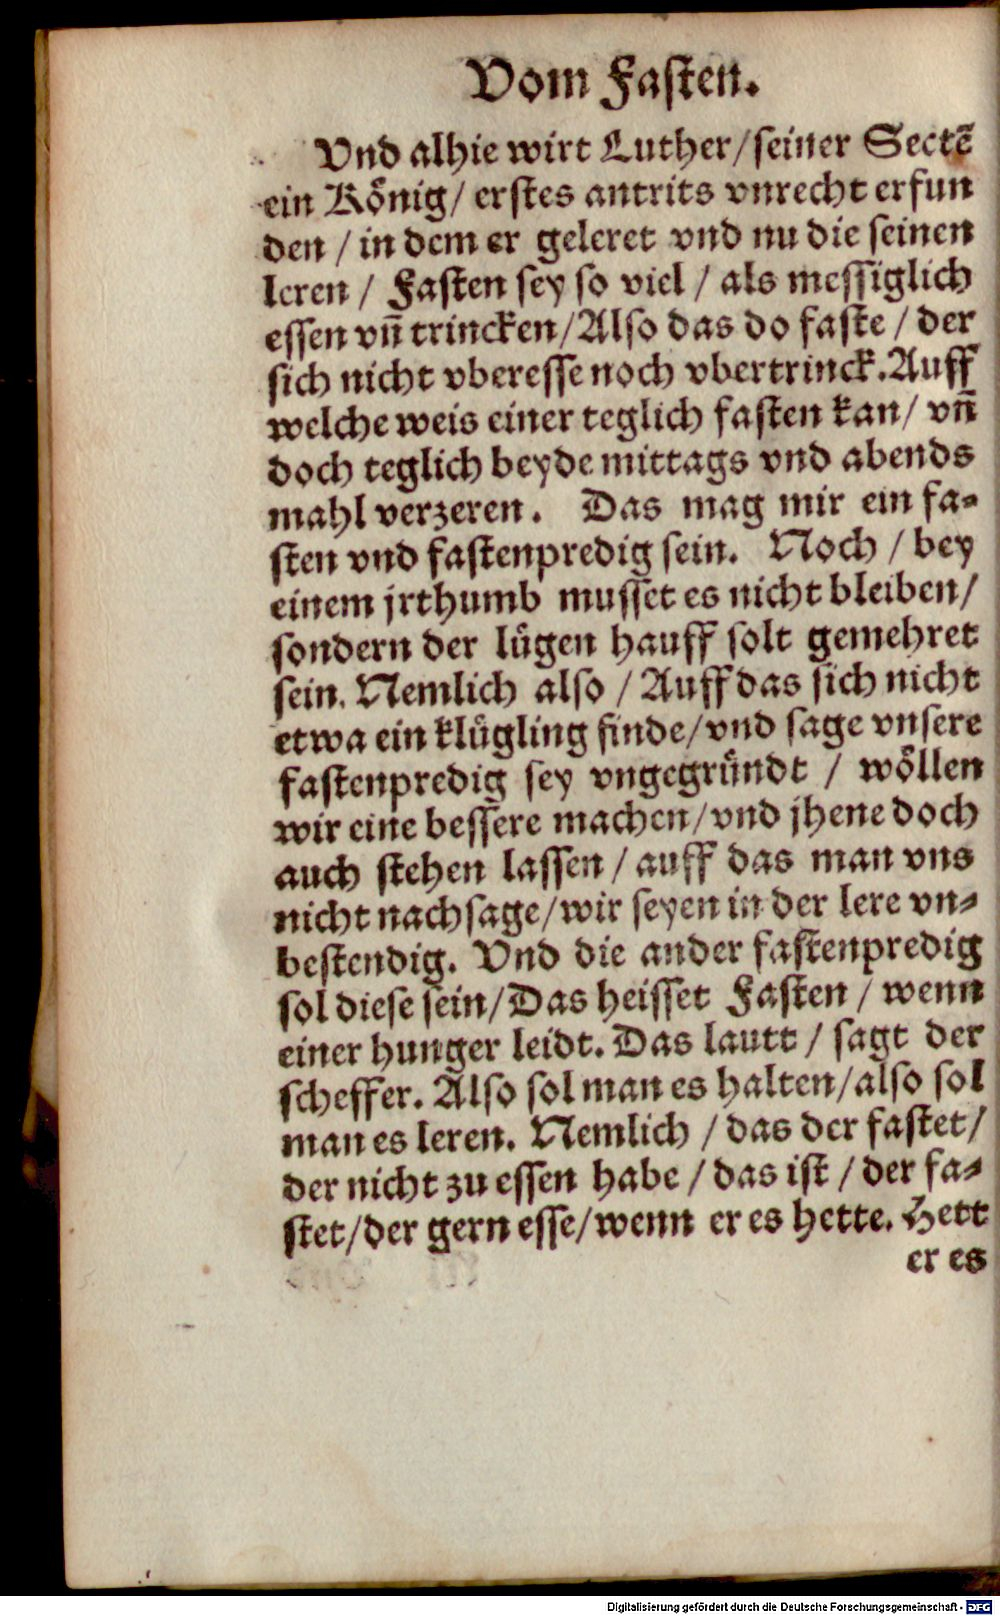 Vom Fasten.
Vnd alhie wirt Luther/seiner Sectẽ
ein König/ erstes antrits vnrecht erfun
den / in dem er geleret vnd nu die seinen
leren / Fasten sey so viel / als messiglich
essen vñ trincken/Also das do faste / der
sich nicht vberesse noch vbertrinck.Auff
welche weis einer teglich fasten kan/ vñ
doch teglich beyde mittags vnd abends
mahl verzeren. Das mag mir ein fa⸗
sten vnd fastenpredig sein. Noch / bey
einem jrthumb musset es nicht bleiben/
sondern der lügen hauff solt gemehret
sein. Nemlich also / Auff das sich nicht
etwa ein klügling finde/vnd sage vnsere
fastenpredig sey vngegründt / wöllen
wir eine bessere machen/vnd jhene doch
auch stehen lassen / auff das man vns
nicht nachsage/wir seyen in der lere vn⸗
bestendig. Vnd die ander fastenpredig
sol diese sein/Das heisset Fasten / wenn
einer hunger leidt. Das lautt / sagt der
scheffer. Also sol man es halten/also sol
man es leren. Nemlich / das der fastet/
der nicht zu essen habe / das ist / der fa⸗
stet/der gern esse/wenn er es hette. Hett
er es
Digitalisierung gefördert durch die Deutsche Forschungsgemeinschaft - DFG